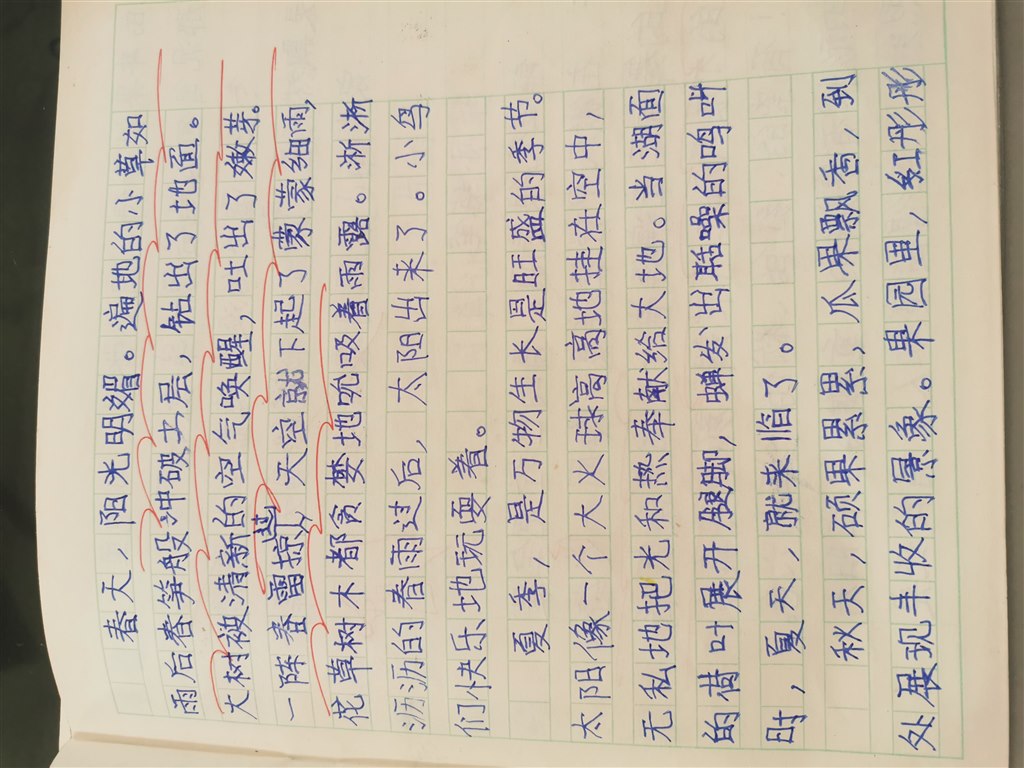 春天，阳光明媚。遍地的小草如
雨后春笋般冲破土层，钻出了地面。
大树被清新的空气唤醒，吐出了嫩芽。
一阵春雷掠过，天空就下起了蒙蒙细雨，
花草树木都贪婪地吮吸着雨露。淅淅
沥沥的春雨过后，太阳出来了。小鸟
们快乐地玩耍着。
夏季，是万物生长是旺盛的季节。
太阳像一个大火球高高地挂在空中，
无私地把光和热奉献给大地。当湖面
的荷叶展开腿脚，蝉发出聒噪的鸣叫
时，夏天，就来临了。
秋天，硕果累累，瓜果飘香，到
处展现丰收的景象。果园里，红彤彤